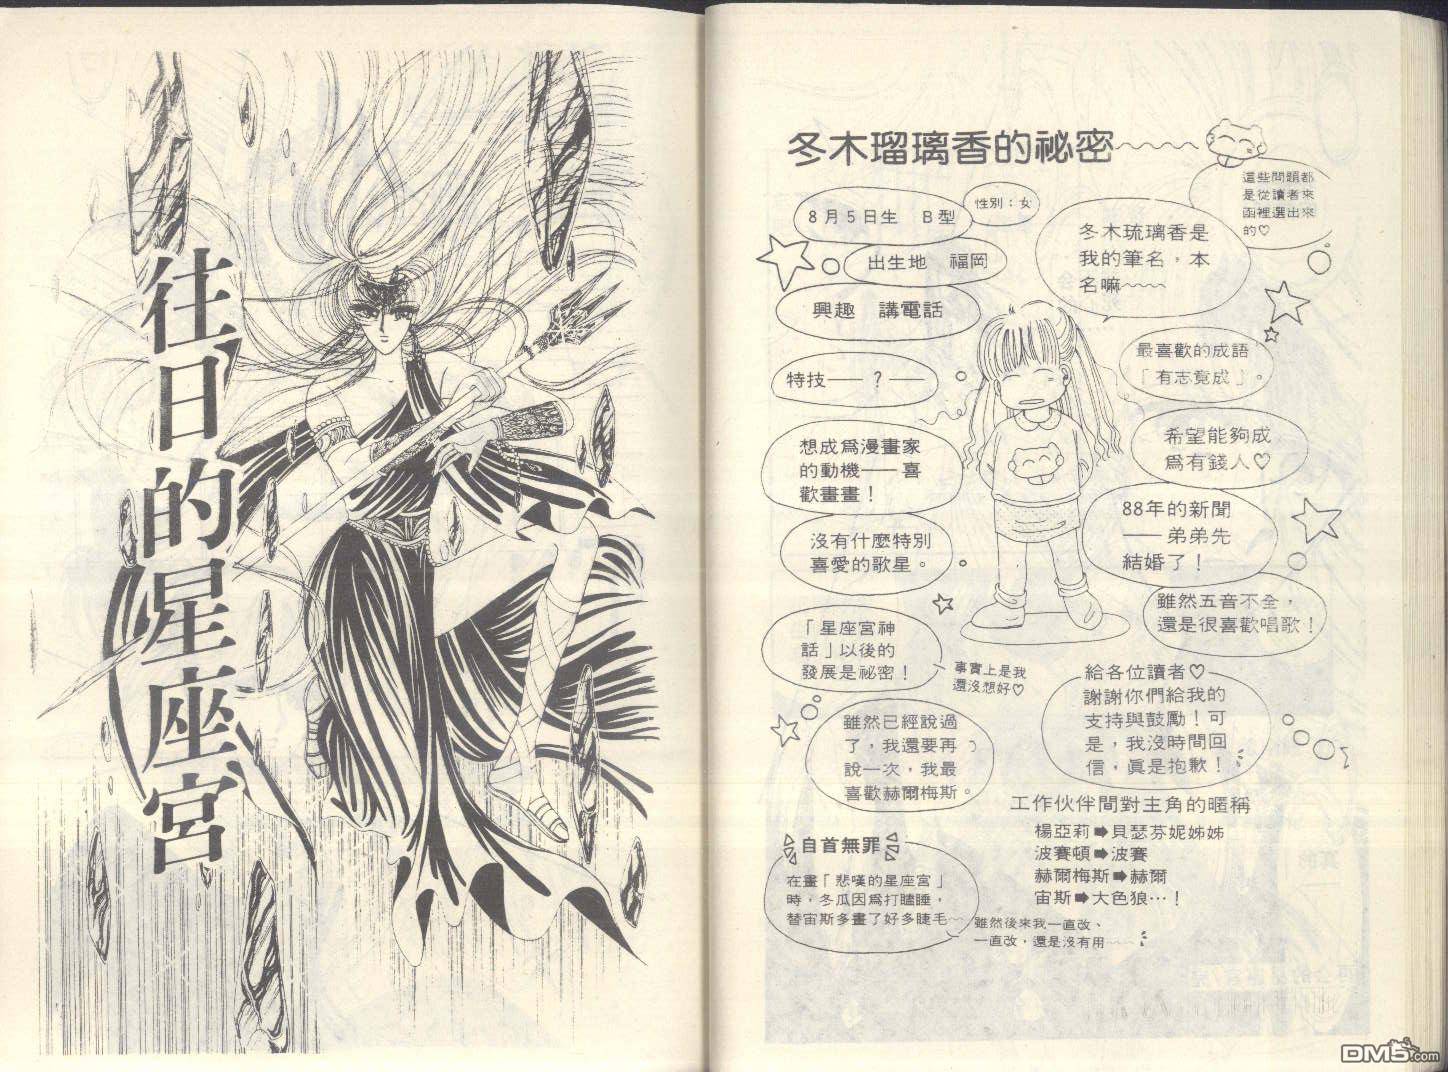 往日的星座宮
冬木瑠璃香的祕密
這些問題都
是從讀者來
函裡選出來
的♡
8月5日生 B型
性別：女
冬木琉璃香是
我的筆名，本
名嘛~~~
出生地 福岡
興趣 講電話
最喜歡的成語
「有志竟成」。
特技——?——
希望能夠成
為有錢人♡
想成為漫畫家
的動機——喜
歡畫畫！
88年的新聞
——弟弟先
結婚了！
沒有什麼特別
喜愛的歌星。
雖然五音不全，
還是很喜歡唱歌！
「星座宮神
話」以後的
發展是祕密！
事實上是我
還沒想好♡
給各位讀者♡
謝謝你們給我的
支持與鼓勵！可
是，我沒時間回
信，真是抱歉！
雖然已經說過
了，我還要再
說一次，我最
喜歡赫爾梅斯。
工作伙伴間對主角的暱稱
楊亞莉➡貝瑟芬妮姊姊
波賽頓➡波賽
赫爾梅斯➡赫爾
宙斯➡大色狼…！
自首無罪
在畫「悲嘆的星座宮」
時，冬瓜因為打瞌睡，
替宙斯多畫了好多睫毛~~
雖然後來我一直改、
一直改，還是沒有用~~~
DM5.com